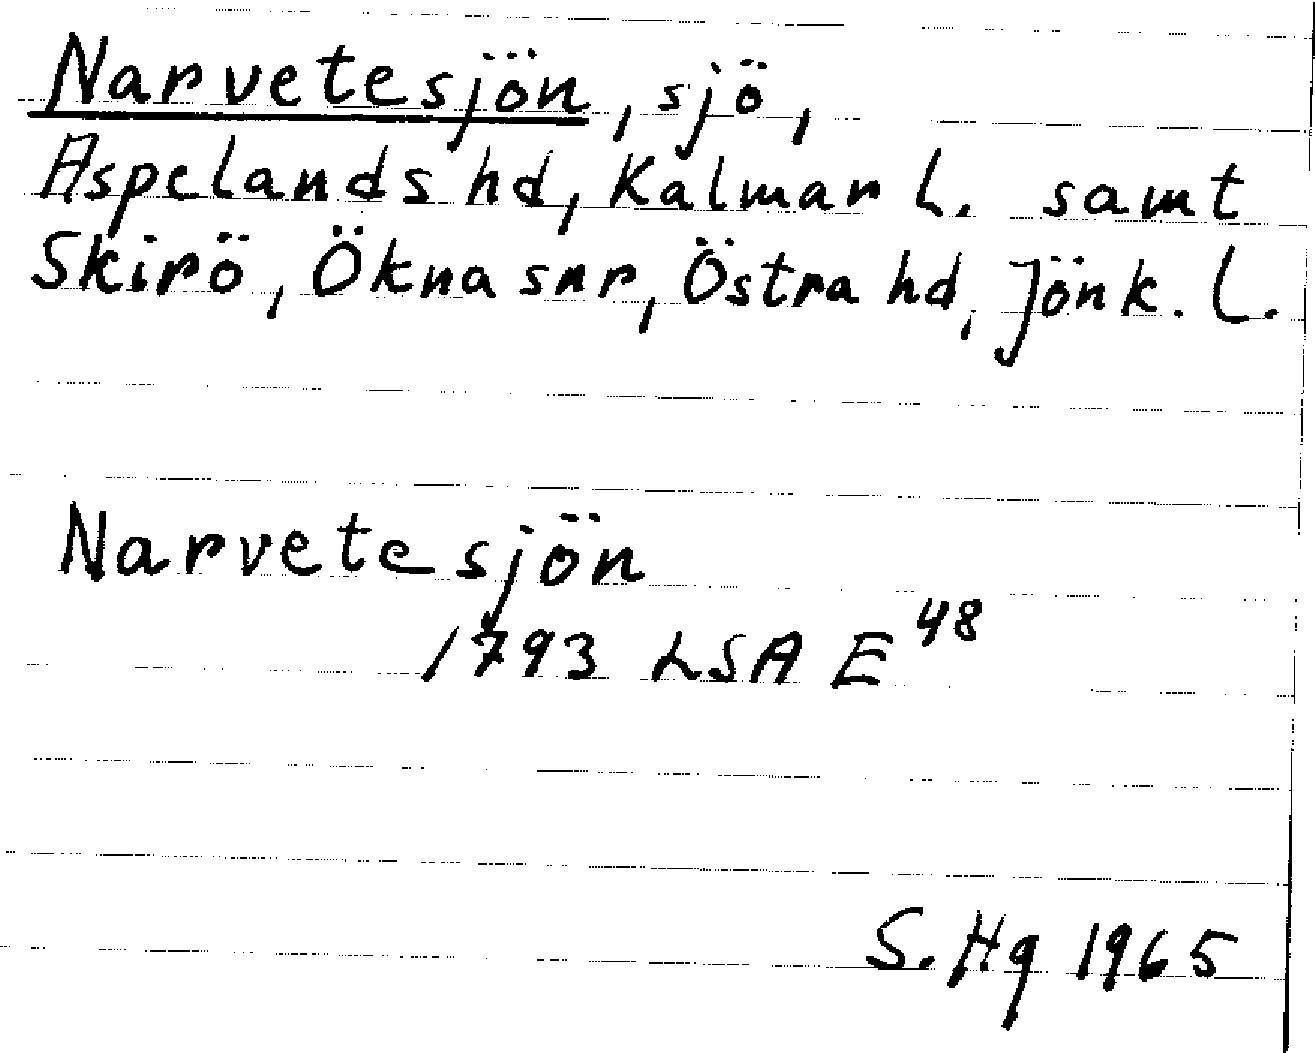 Narvetesjön, sjö,
Aspelands hd, Kalmar l. samt
Skirö, Ökna snr, Östra hd, Jönk. l.
Narvetesjön
1793 LSA E 48
S. Hg 1965